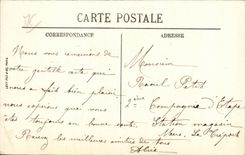 CARTE POSTALE
CORRESPONDANCE
ADRESSE
Nous vous remercions de
votre gentille carte qui
nous a fait bien plaisir
nous espérons que vous
êtes toujours en bonne santé.
Recevez les meilleures amitiés de tous
Monsieur
Raoul Petit
Compagnie d'Étape
Station magasin
Mers Le Tréport